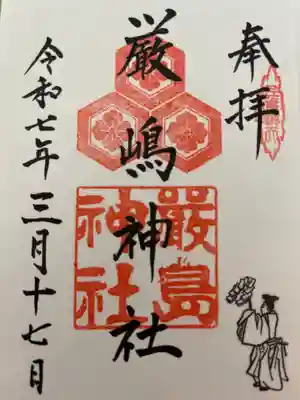 奉拝
厳嶋神社
嚴島神社
令和七年三月十七日